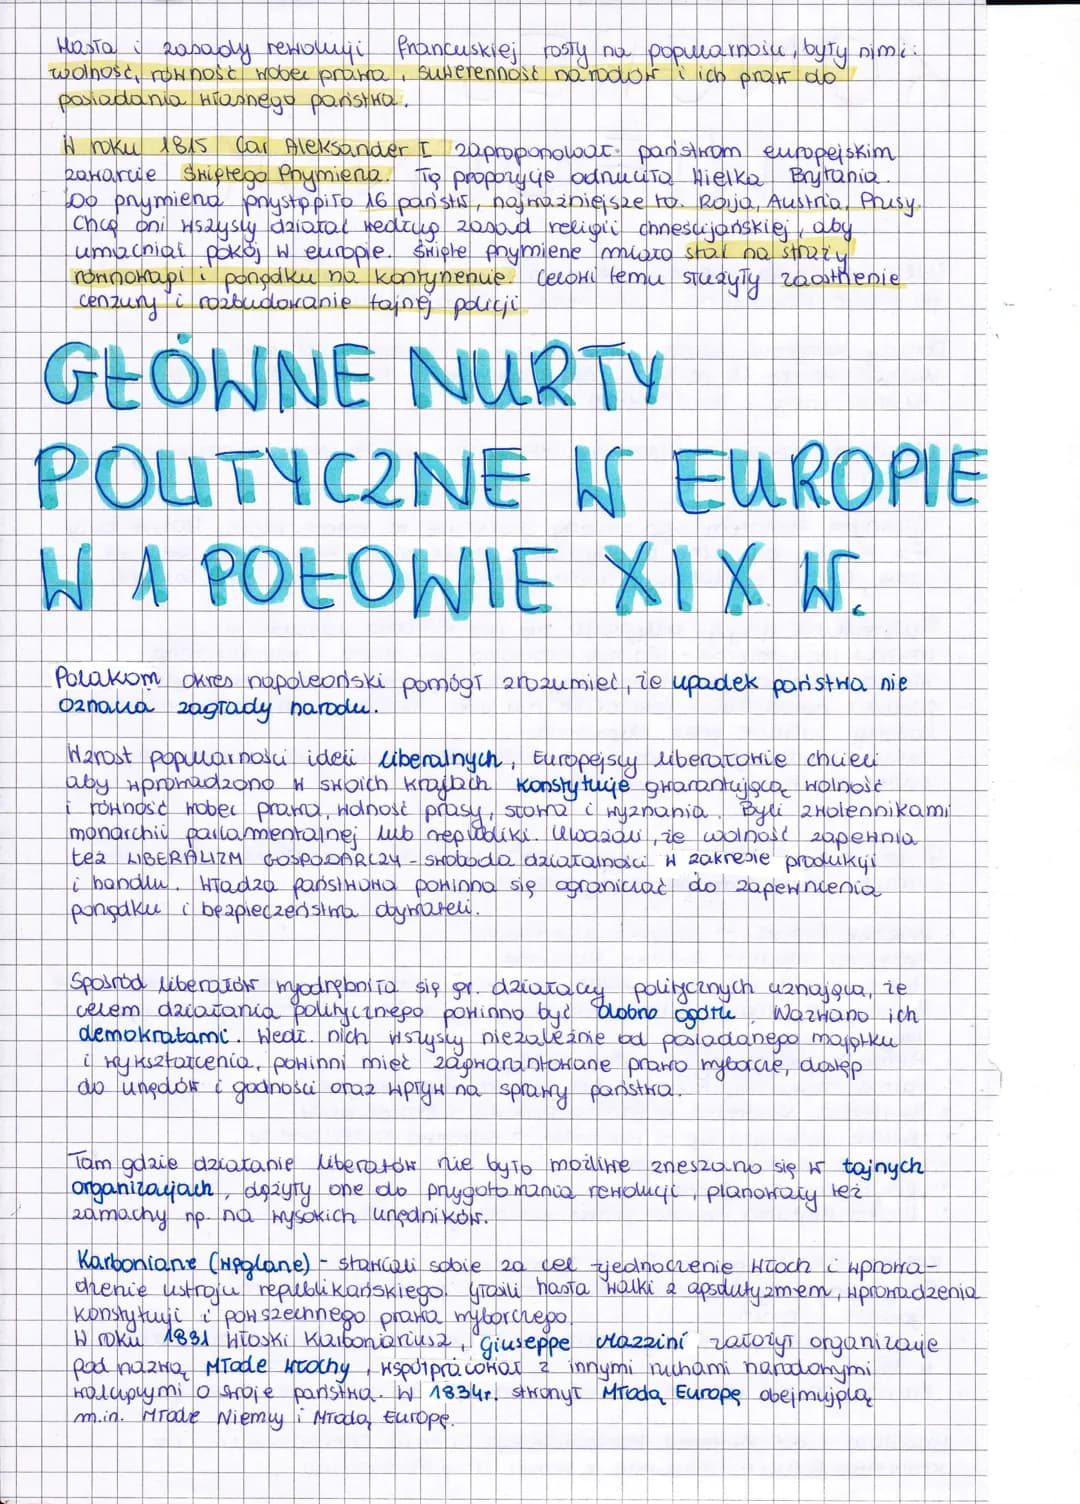 Hasła i zasady rewolucji francuskiej rosły na popularności, były nimi:
wolność, równość wobec prawa, suwerenność narodów i ich praw do
posiadania własnego państwa.
W roku 1815 Car Aleksander I zaproponował państwom europejskim
zawarcie Świętego Przymierza. Tę propozycję odrzuciła Wielka Brytania.
Do przymierza przystąpiło 16 państw, najważniejsze to: Rosja, Austria, Prusy.
Chcą oni wszyscy działać według zasad religii chrześcijańskiej, aby
umacniać pokój w europie. Święte przymierze miało stać na straży
równowagi i porządku na kontynencie. Celowi temu służyły zaostrzenie
cenzury i rozbudowanie tajnej policji
GŁÓWNE NURTY
POLITYCZNE W EUROPIE
W 1 POŁOWIE XIX W.
Polakom okres napoleoński pomógł zrozumieć, że upadek państwa nie
oznacza zagłady narodu.
Wzrost popularności ideii liberalnych, Europejscy liberałowie chcieli
aby wprowadzono w swoich krajach konstytucje gwarantującą wolność
i równość wobec prawa, wolność prasy, słowa i wyznania. Byli zwolennikami
monarchii parlamentalnej lub republiki. Uważali, że wolność zapewnia
też LIBERALIZM GOSPODARCZY - swoboda działalności w zakresie produkcji
i handlu. Władza państwowa powinna się ograniczać do zapewnienia
porządku i bezpieczeństwa obywateli.
Spośród liberałów wyodrębniła się gr. działaczy politycznych uznająca, że
celem działania politycznego powinno być dobro ogółu. Nazwano ich
demokratami. Wedł. nich wszyscy niezależnie od posiadanego majątku
i wykształcenia, powinni mieć zagwarantowane prawo wyborcze, dostęp
do urzędów i godności oraz wpływ na sprawy państwa.
Tam gdzie działanie liberałów nie było możliwe zrzeszano się w tajnych
organizacjach, dążyły one do przygotowania rewolucji, planowały też
zamachy np. na wysokich urzędników.
Karboniarze (węglarze) - stawiali sobie za cel zjednoczenie Włoch i wprowa-
dzenie ustroju republikańskiego. Głosili hasła walki z apsolutyzmem, wprowadzenia
konstytucji i powszechnego prawa wyborczego.
W roku 1831 włoski Karboniariusz, Giuseppe Mazzini założył organizacje
pod nazwą Młode Włochy, współpracował z innymi ruchami narodowymi
walczącymi o swoje państwa. W 1834r. stworzył Młodą Europę obejmującą
m.in. Młode Niemcy i Młodą Europę.